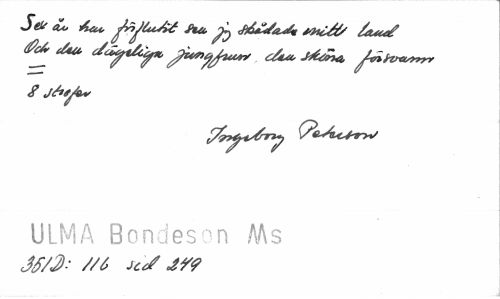 Sex år har förflutit sen jg skådade mitt land
Och den dägeliga jungfrun, den sköna försvann
=
8 strofer
Ingeborg Peterson
ULMA Bondeson Ms
351D: 116 sid 249